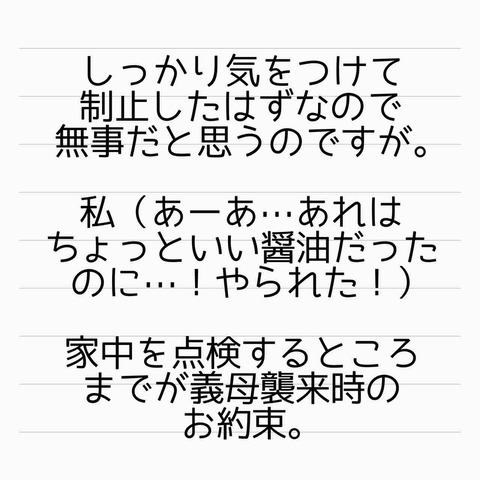 しっかり気をつけて
制止したはずなので
無事だと思うのですが。
私（あーあ…あれは
ちょっといい醤油だった
のに…！やられた！）
家中を点検するところ
までが義母襲来時の
お約束。